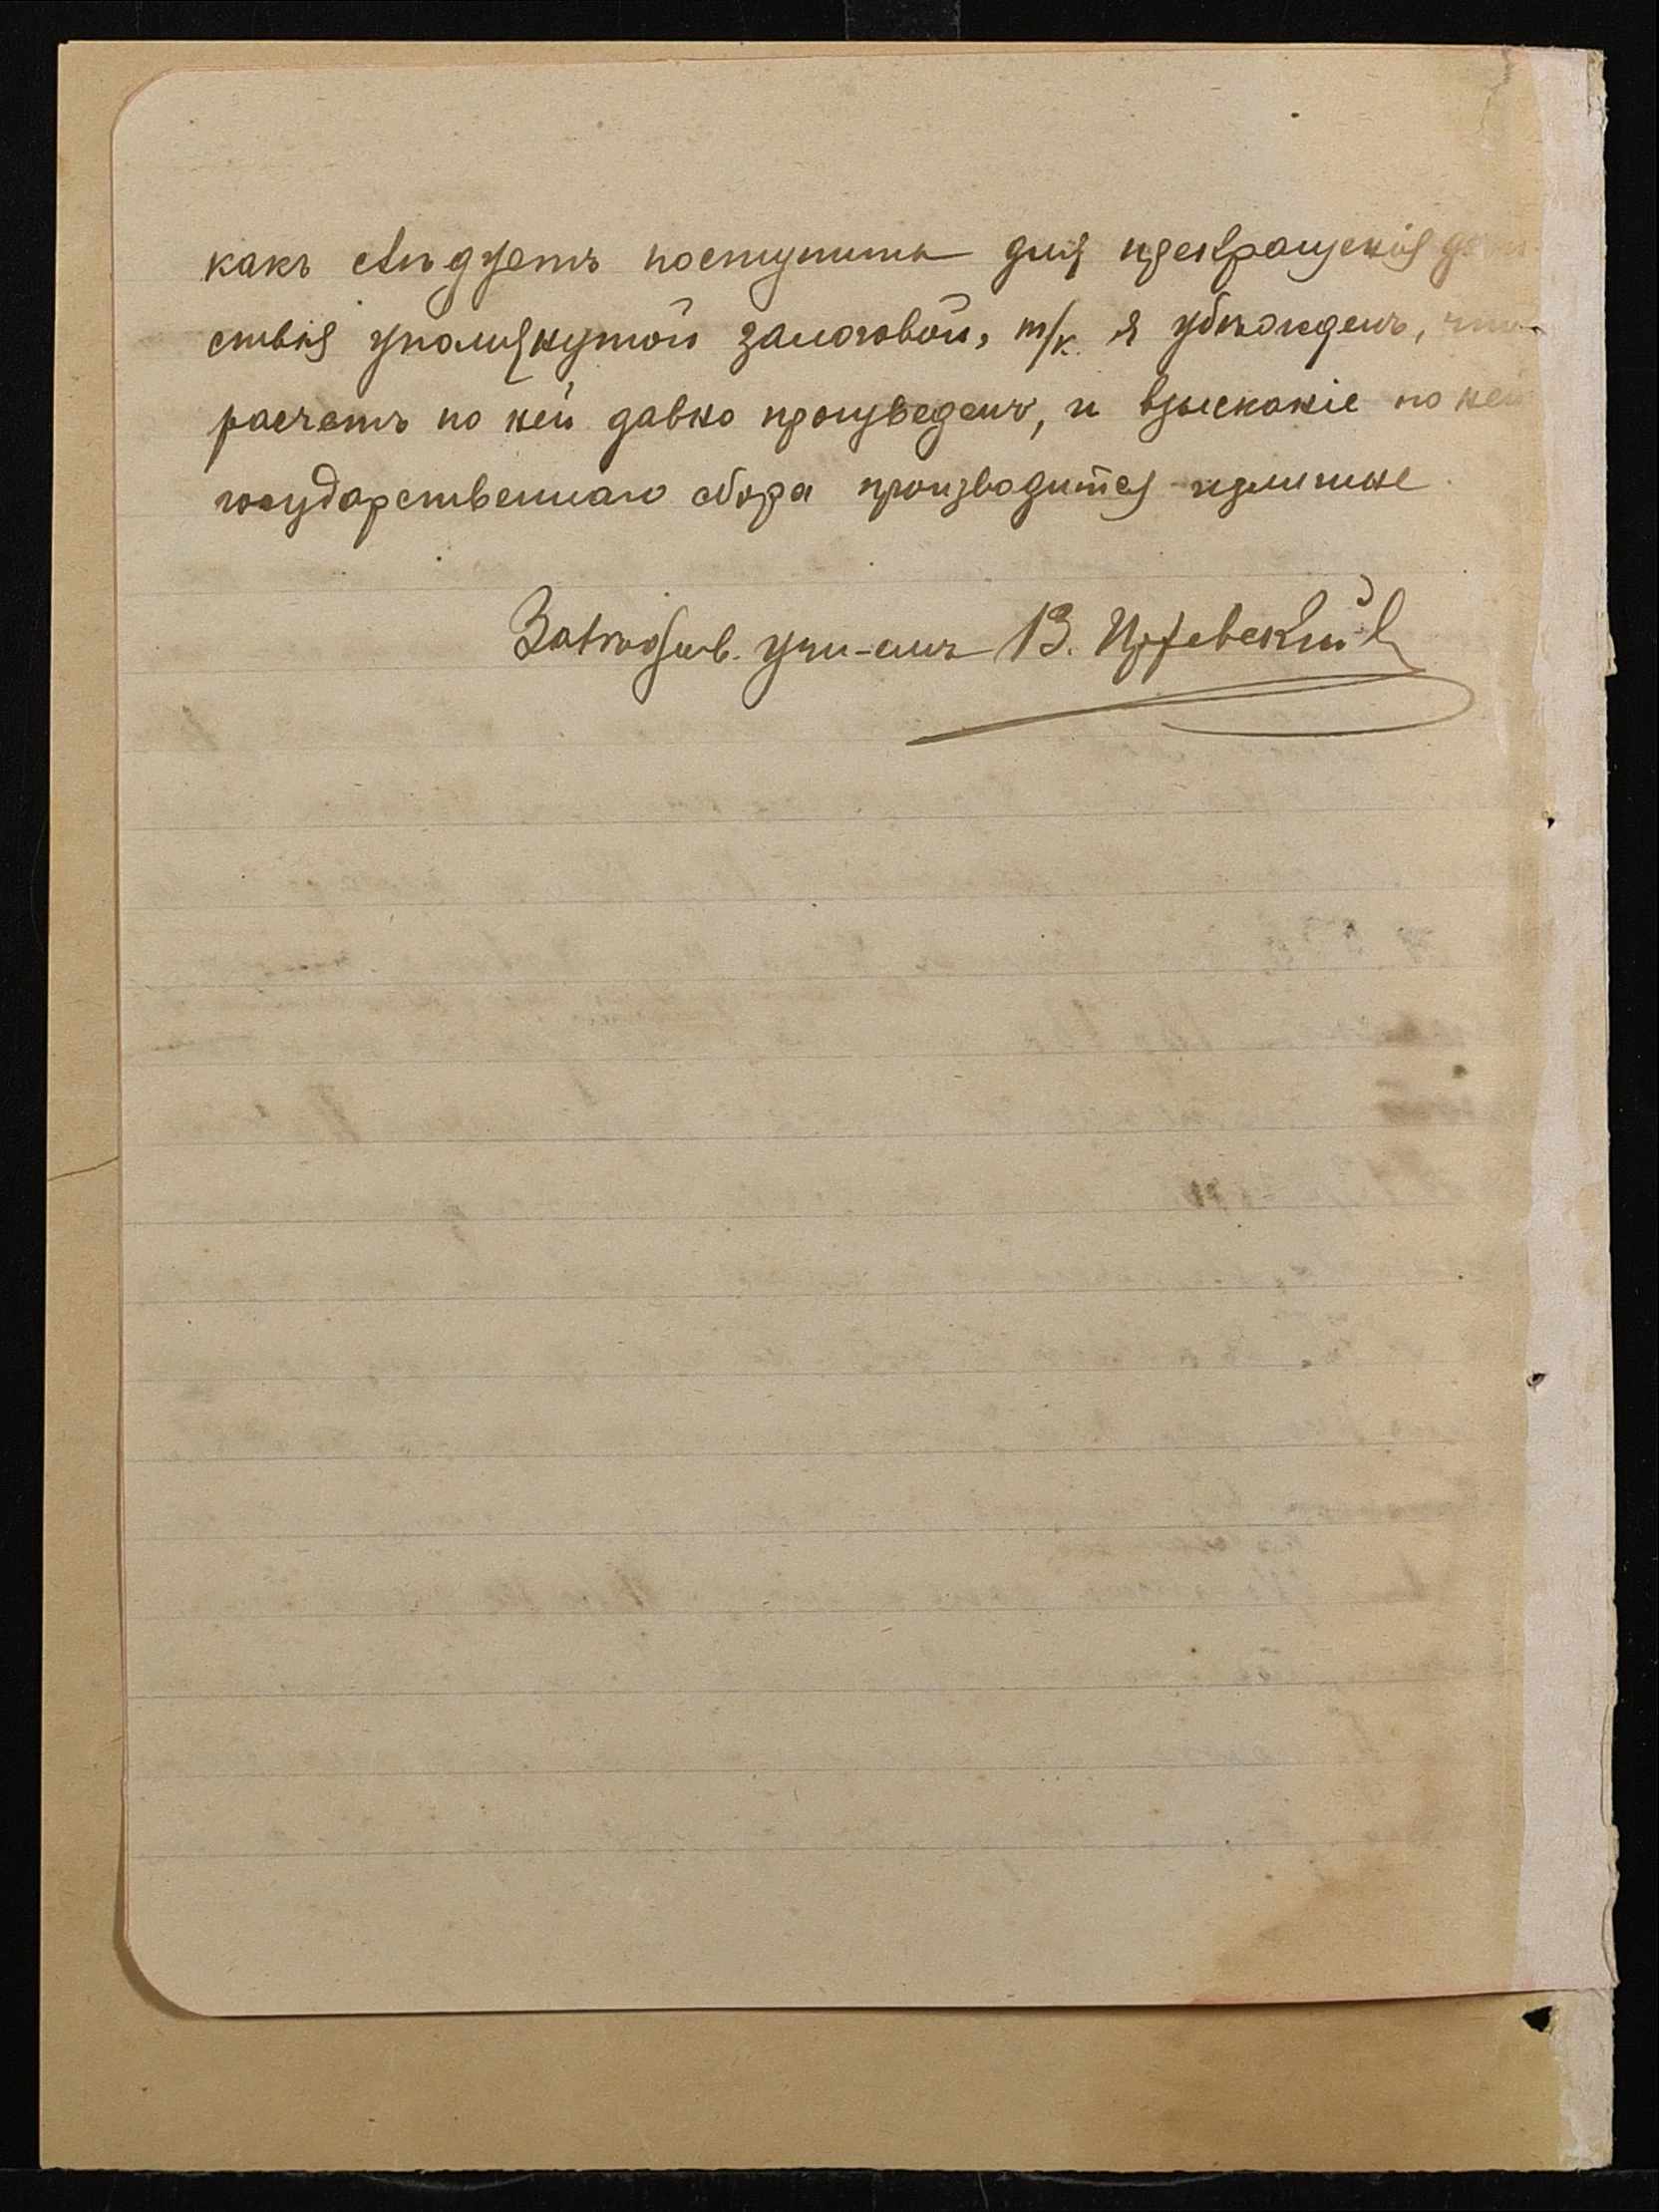 какъ слѣдуетъ поступить для прекращенія дѣй-
ствія упомянутой залоговой, т/к. я убѣжденъ, что
расчетъ по ней давно произведенъ, и взысканіе по ней
государственнаго сбора производится излишне.
Завѣдыв. учи-щемъ В.